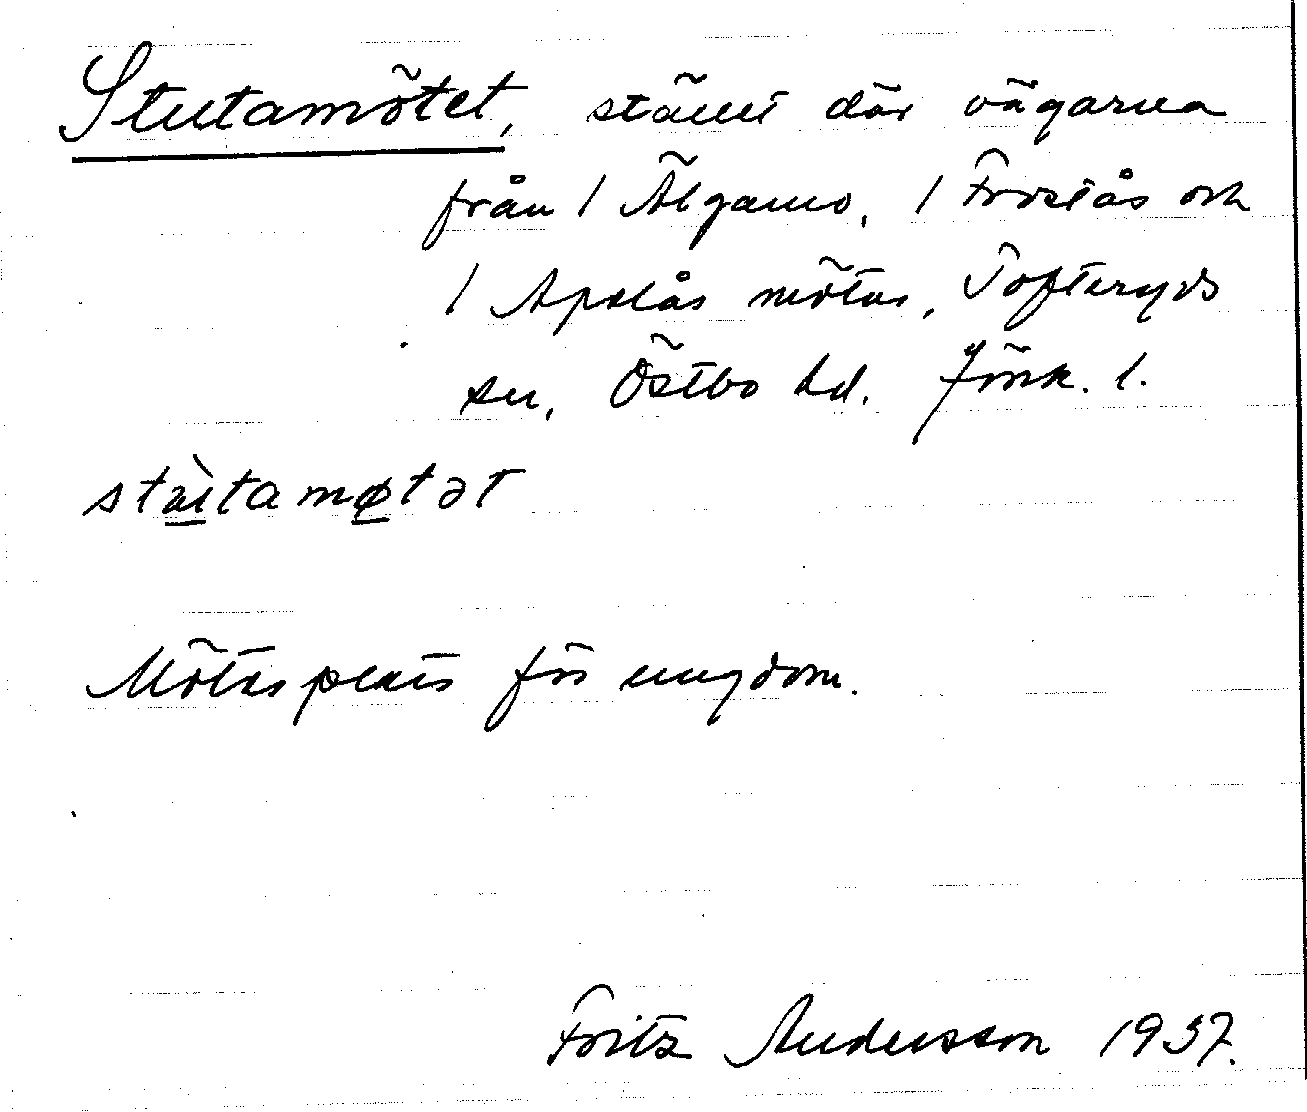 Stutamötet, ställe där vägarna
från / Älgamo, / Frostås och
/ Apslås mötas, Tofteryds
sn, Östbo hd. Jönk. l.
stu̇tamøtət
Mötesplats för ungdom.
Fritz Andersson 1937.